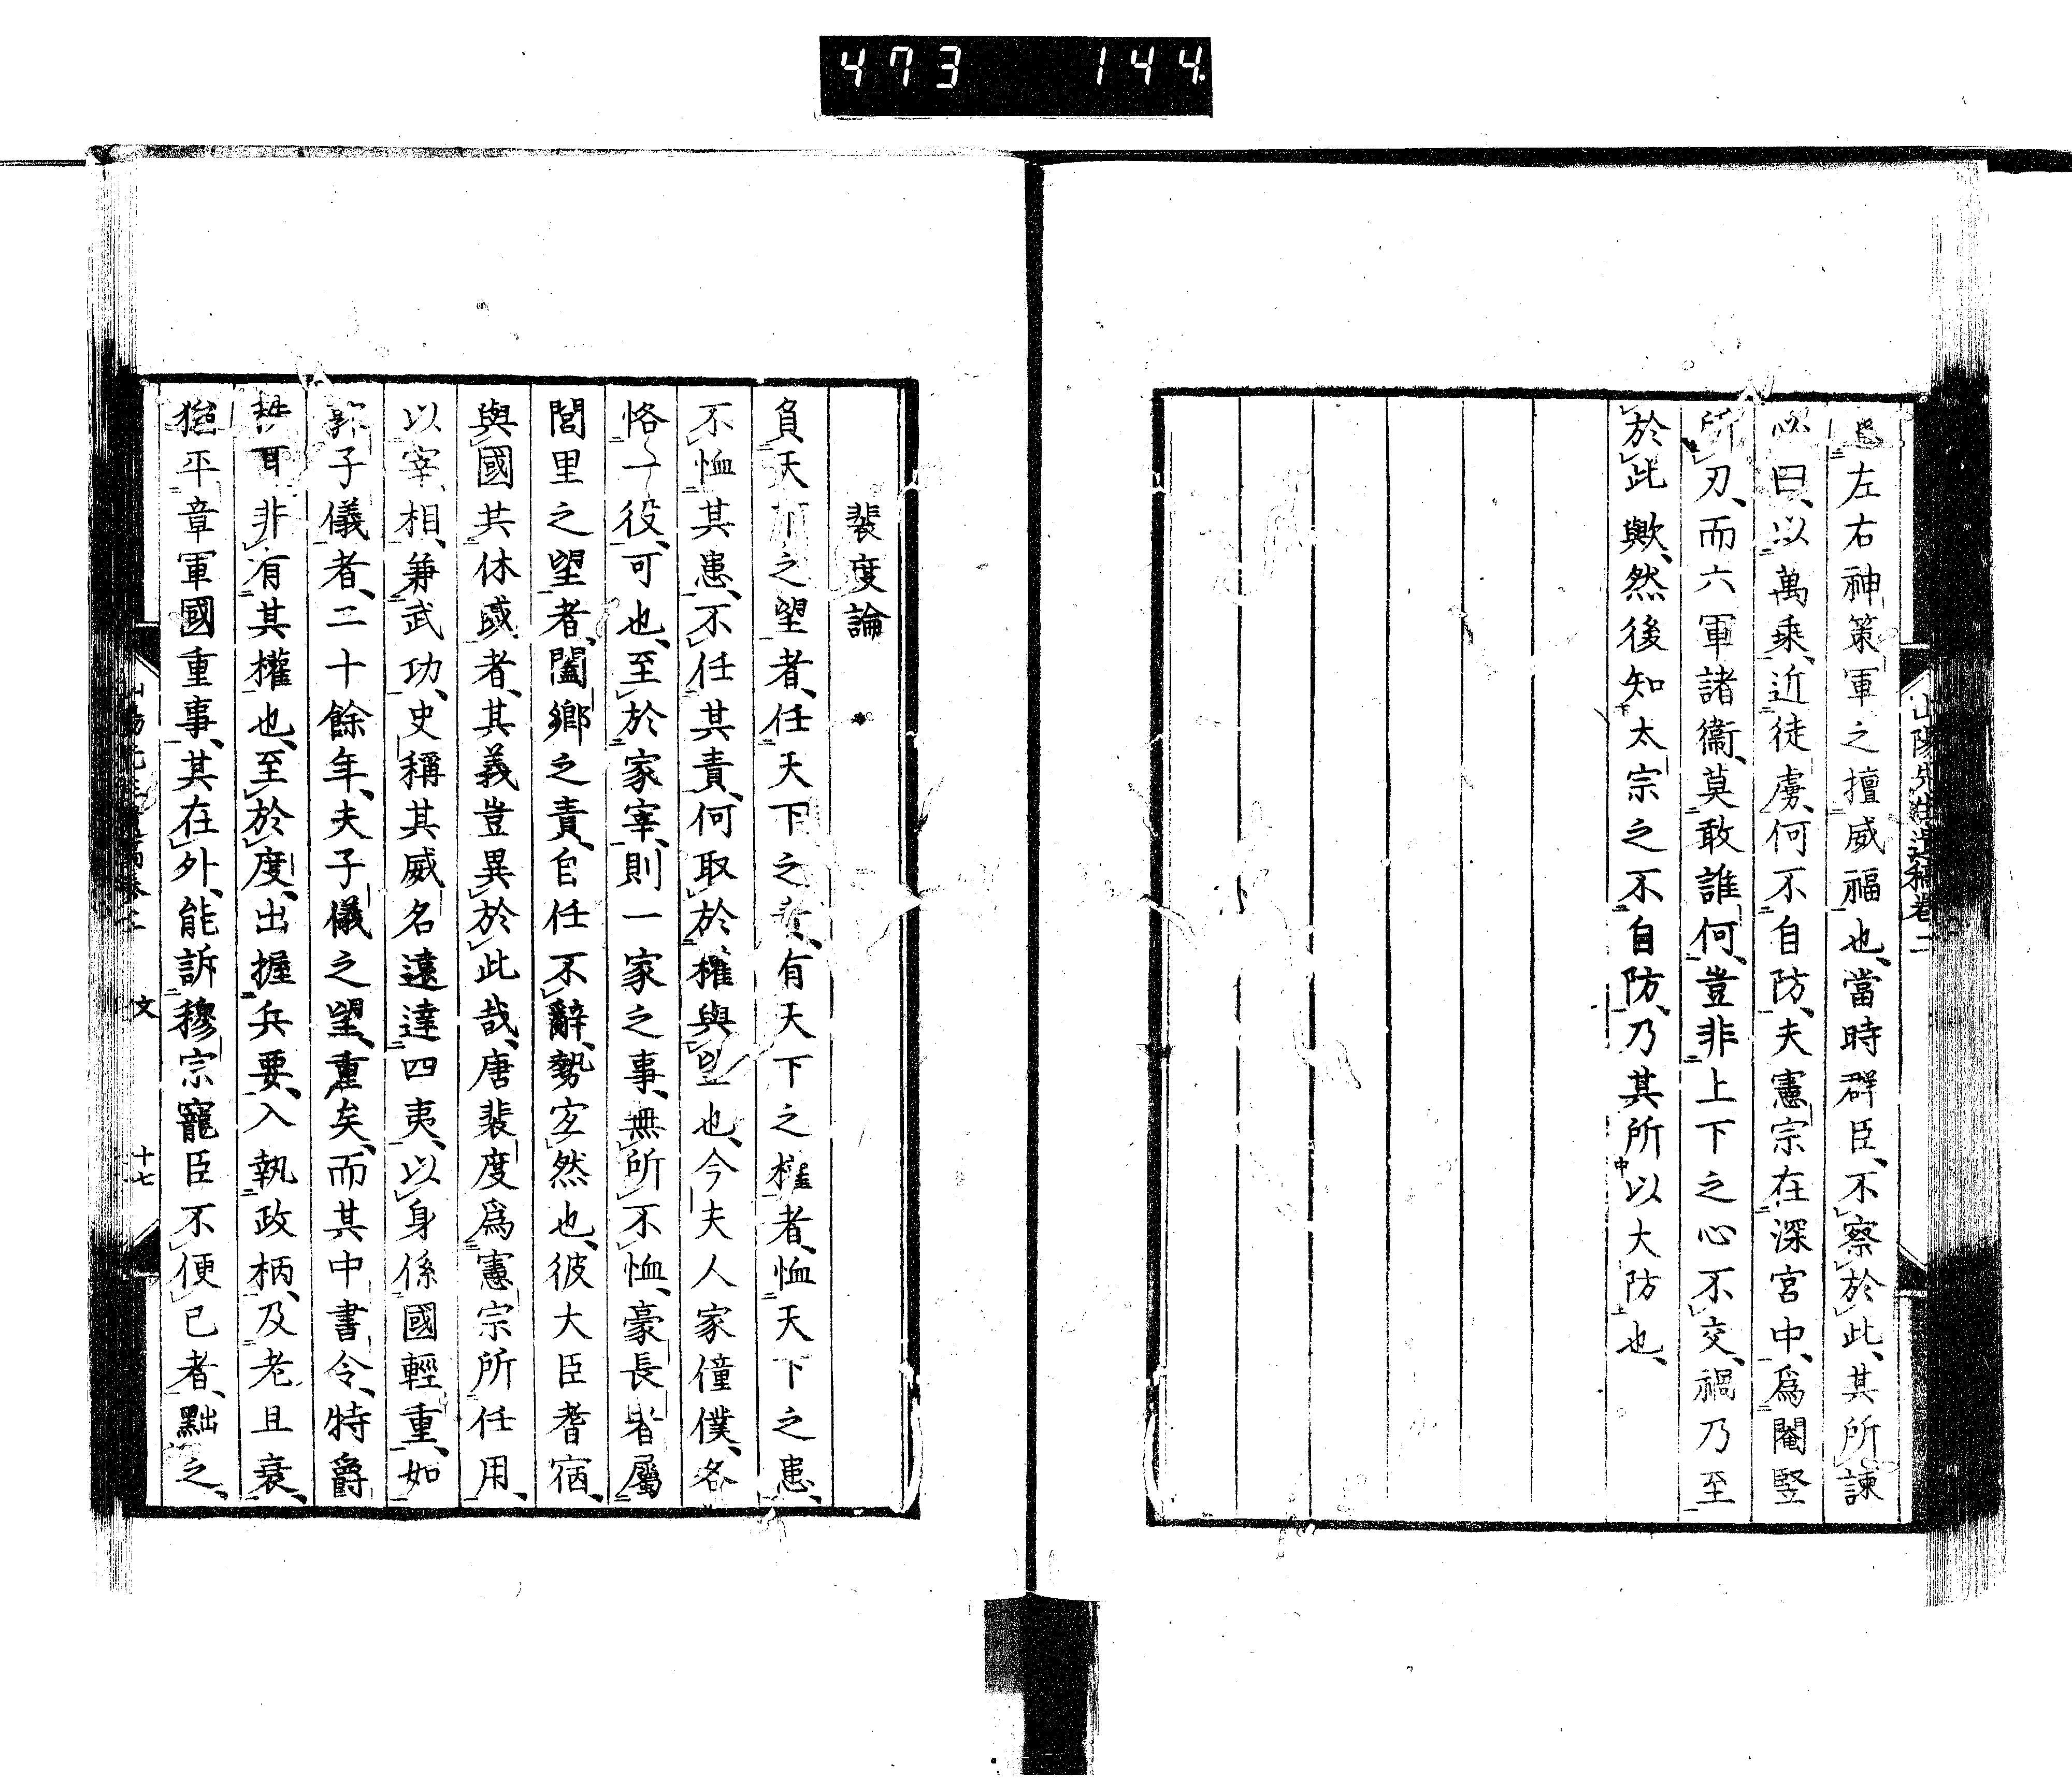 473 144
山陽先生遺稿卷二
左右神策軍之擅威福也、當時群臣、不察於此、其所諫
必曰、以萬乘、近徒虜、何不自防、夫憲宗在深宮中、爲閹竪
所刃、而六軍諸衞、莫敢誰何、豈非上下之心不交、禍乃至
於此歟、然後知太宗之不自防、乃其所以大防也、
裴度論
負天下之望者、任天下之責、有天下之權者、恤天下之患、
不恤其患、不任其責、何取於權與望也、今夫人家僮僕、各
恪一役、可也、至於家宰、則一家之事、無所不恤、豪長省屬
閭里之望者、闔鄉之責、自任不辭、勢宜然也、彼大臣耆宿、
與國共休戚者、其義豈異於此哉、唐裴度爲憲宗所任用、
以宰相、兼武功、史稱其威名遠達四夷、以身係國輕重、如
郭子儀者、二十餘年、夫子儀之望、重矣、而其中書令、特爵
耳、非有其權也、至於度、出握兵要、入執政柄、及老且衰、
猶平章軍國重事、其在外、能訴穆宗寵臣不便已者、黜之、
文
十七